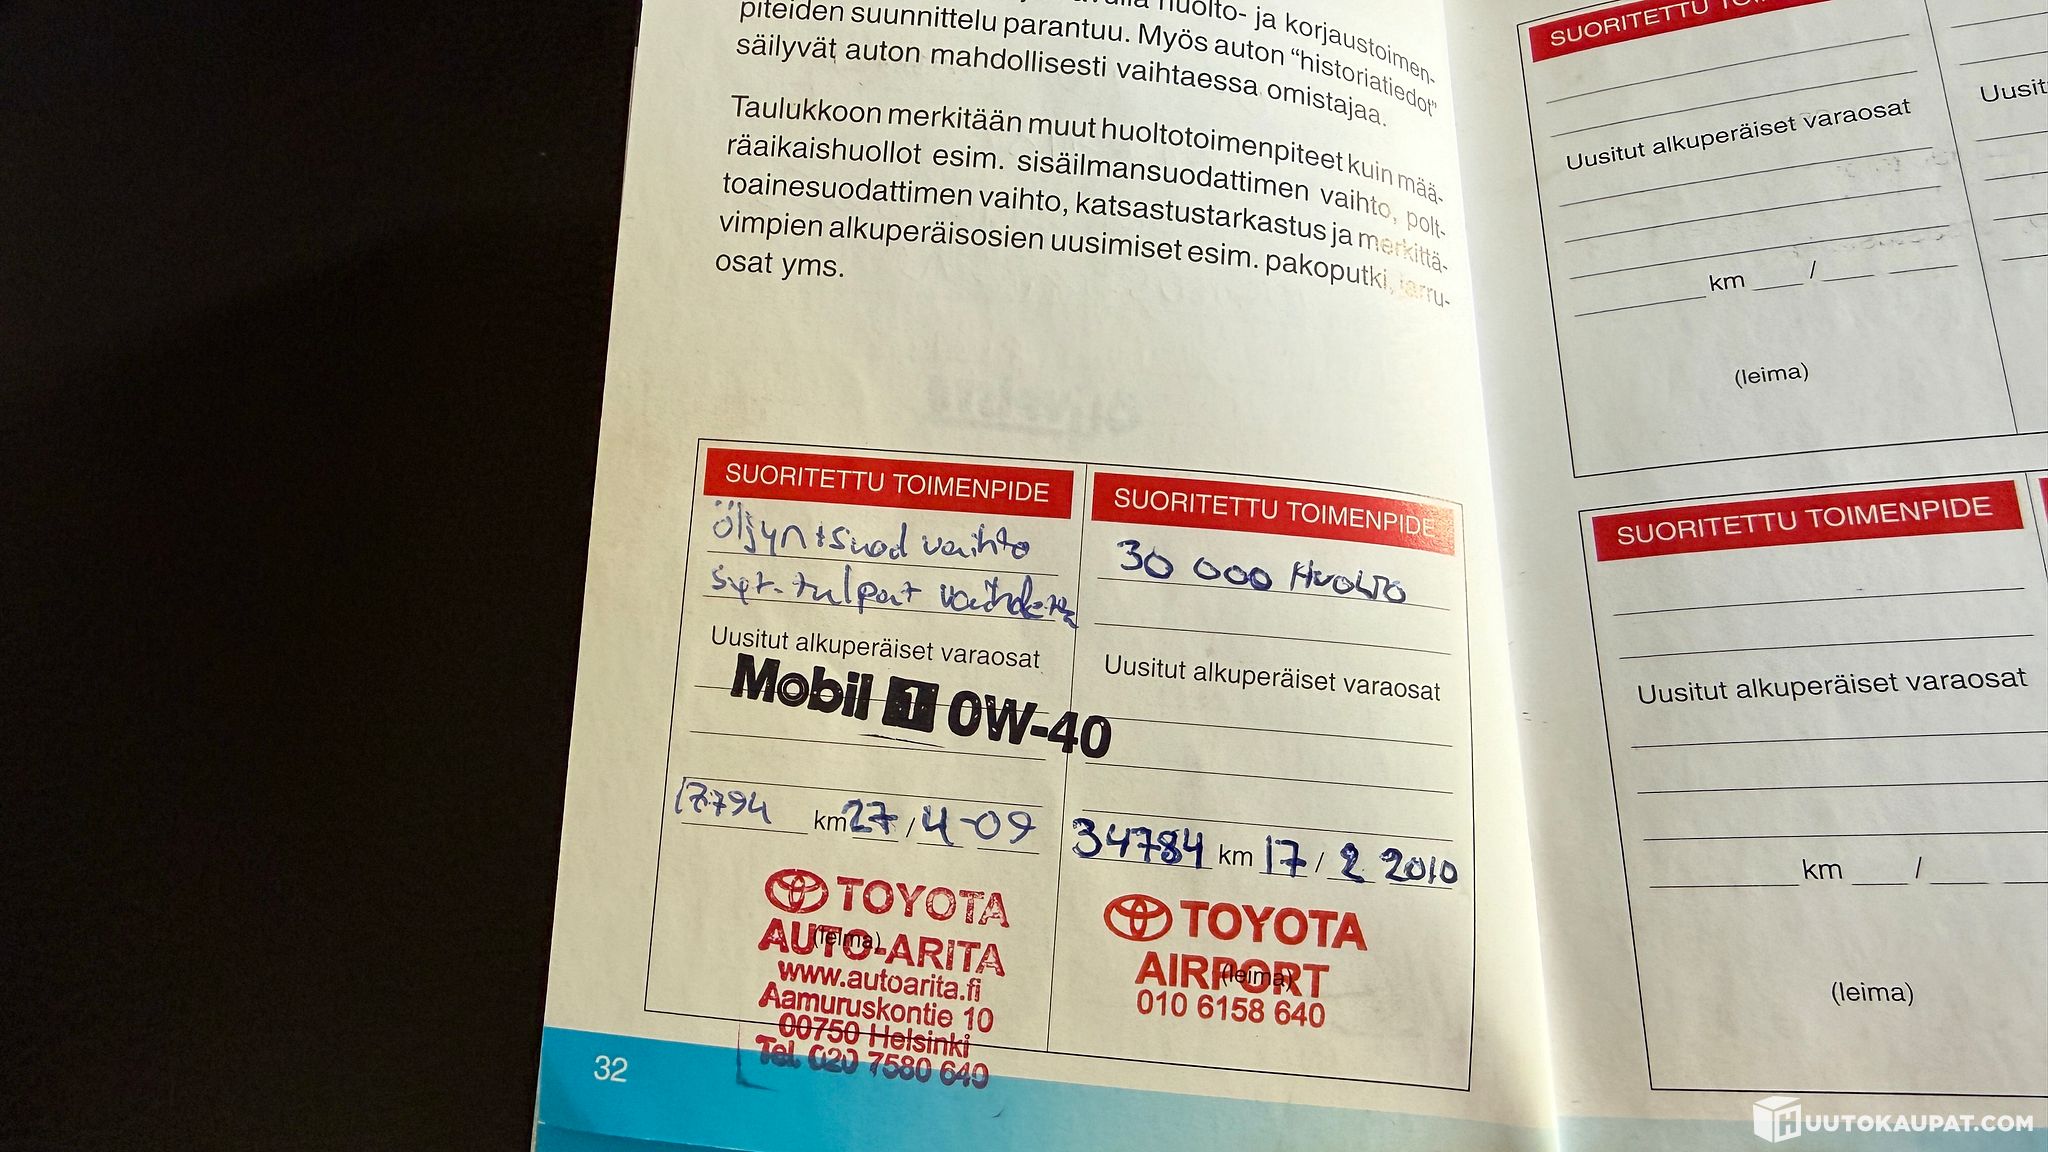 huolto- ja korjaustoimen-
piteiden suunnittelu parantuu. Myös auton “historiatiedot”
säilyvät auton mahdollisesti vaihtaessa omistajaa.
Taulukkoon merkitään muut huoltotoimenpiteet kuin mää-
räaikaishuollot esim. sisäilmansuodattimen vaihto, polt-
toainesuodattimen vaihto, katsastustarkastus ja merkittä-
vimpien alkuperäisosien uusimiset esim. pakoputki, jarru-
osat yms.
SUORITETTU TOIMENPIDE
öljyn+suod vaihto
syt. tulpat
Uusitut alkuperäiset varaosat
Mobil 1 0W-40
17794 km 27 / 4 -09
(leima)
TOYOTA
AUTO-ARITA
www.autoarita.fi
Aamuruskontie 10
00750 Helsinki
Tel. 020 7580 640
SUORITETTU TOIMENPIDE
30 000 HUOLTO
Uusitut alkuperäiset varaosat
34784 km 17 / 2 2010
(leima)
TOYOTA
AIRPORT
010 6158 640
32
SUORITETTU
Uusitut alkuperäiset varaosat
km /
(leima)
SUORITETTU TOIMENPIDE
Uusitut alkuperäiset varaosat
km /
(leima)
HUUTOKAUPAT.COM